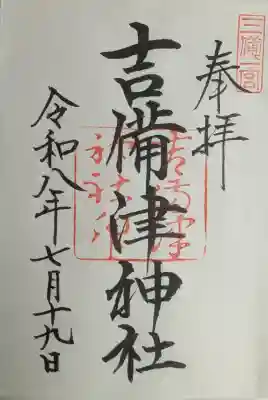 三備一宮
奉拝
吉備津神社
令和八年七月十九日